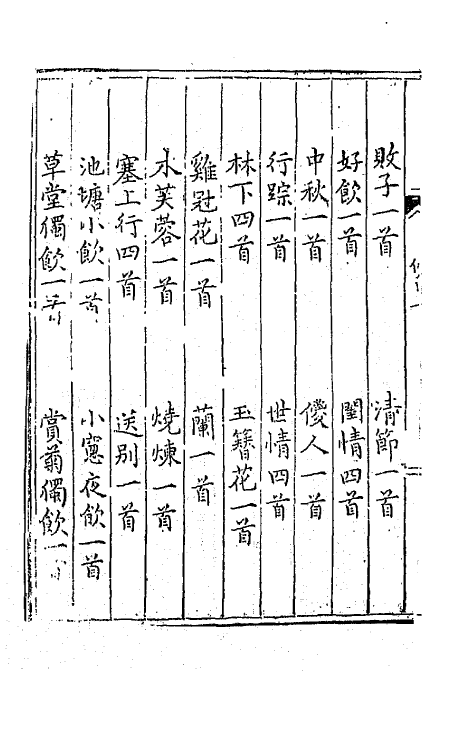 敗子一首　清節一首
好飲一首　閨情四首
中秋一首　儍人一首
行踪一首　世情四首
林下四首　玉簪花一首
雞冠花一首　蘭一首
木芙蓉一首　燒煉一首
塞上行四首　送别一首
池塘小飲一首　小窻夜飲一首
草堂獨飲一首　賞菊獨飲一